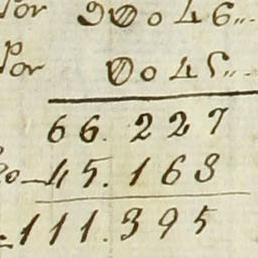 Por 9Ø046..
Por Ø045..
66.227
45.168
111.395